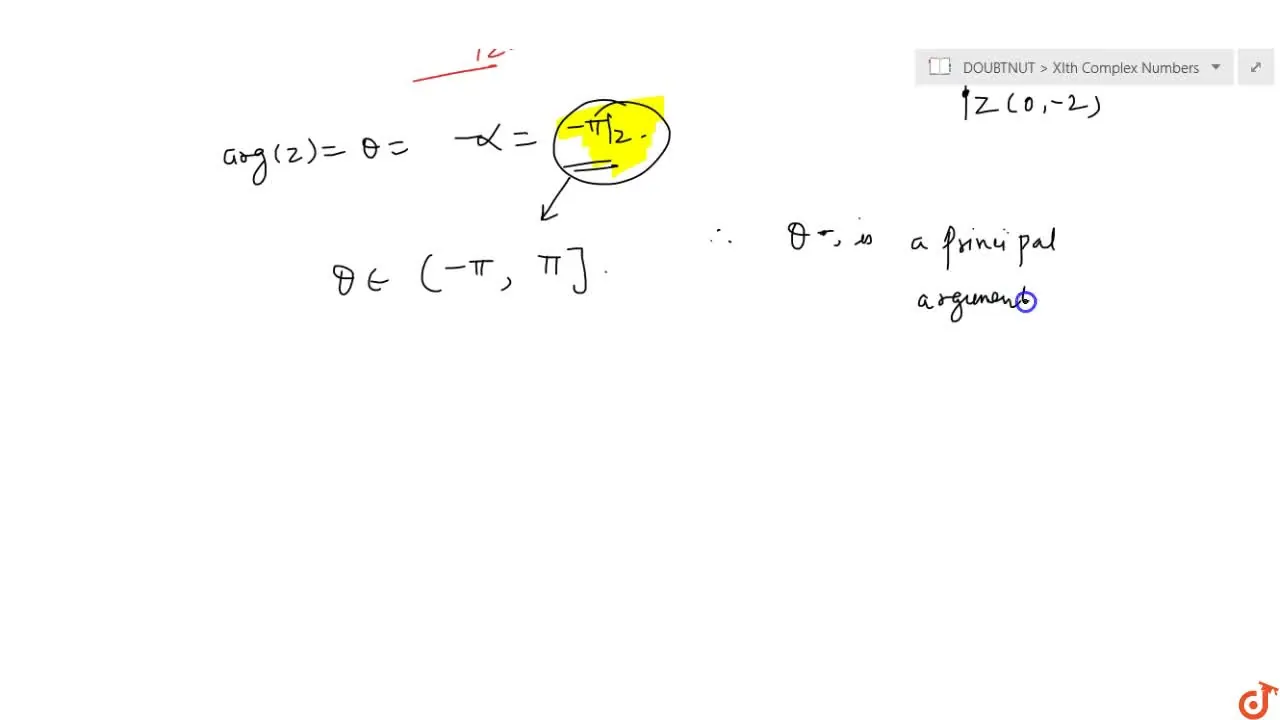 DOUBTNUT > XIth Complex Numbers
Z(0,-2)
arg(z) = θ = -α = -π/2.
∴ θ is a principal
θ ∈ (-π, π].
argument